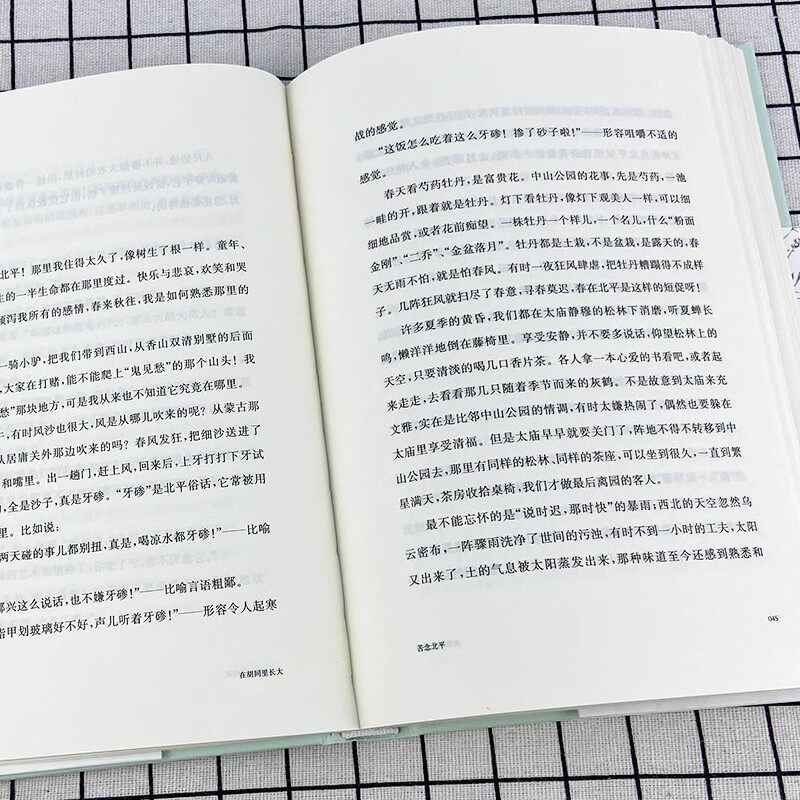 北平！那里我住得太久了，像树生了根一样。童年、
的一半生命都在那里度过。快乐与悲哀，欢笑和哭
泻我所有的感情，春来秋往，我是如何熟悉那里的
一骑小驴，把我们带到西山，从香山双清别墅的后面
，大家在打赌，能不能爬上“鬼见愁”的那个山头！我
愁”那块地方，可是我从来也不知道它究竟在哪里。
，有时风沙也很大，风是从哪儿吹来的呢？从蒙古那
从居庸关外那边吹来的吗？春风发狂，把细沙送进了
和嘴里。出一趟门，赶上风，回来后，上牙打打下牙试
，全是沙子，真是牙碜。“牙碜”是北平俗话，它常被用
里。比如说：
两天碰的事儿都别扭，真是，喝凉水都牙碜！”——比喻
兴这么说话，也不嫌牙碜！”——比喻言语粗鄙。
指甲划玻璃好不好，声儿听着牙碜！”——形容令人起寒
在胡同里长大
战的感觉。
“这饭怎么吃着这么牙碜！掺了砂子啦！”——形容咀嚼不适的
感觉。
春天看芍药牡丹，是富贵花。中山公园的花事，先是芍药，一池
一畦的开，跟着就是牡丹。灯下看牡丹，像灯下观美人一样，可以细
细地品赏，或者花前痴望。一株牡丹一个样儿，一个名儿，什么“粉面
金刚”、“二乔”、“金盆落月”。牡丹都是土栽，不是盆栽，是露天的，春
天无雨不怕，就是怕春风。有时一夜狂风肆虐，把牡丹糟蹋得不成样
子。几阵狂风就扫尽了春意，寻春莫迟，春在北平是这样的短促呀！
许多夏季的黄昏，我们都在太庙静穆的松林下消磨，听夏蝉长
鸣，懒洋洋地倒在藤椅里。享受安静，并不要多说话，仰望松林上的
天空，只要清淡的喝几口香片茶。各人拿一本心爱的书看吧，或者起
来走走，去看看那几只随着季节而来的灰鹤。不是故意到太庙来充
文雅，实在是比邻中山公园的情调，有时太嫌热闹了，偶然也要躲在
太庙里享受清福。但是太庙早早就要关门了，阵地不得不转移到中
山公园去，那里有同样的松林、同样的茶座，可以坐到很久，一直到繁
星满天，茶房收拾桌椅，我们才做最后离园的客人。
最不能忘怀的是“说时迟，那时快”的暴雨；西北的天空忽然乌
云密布，一阵骤雨洗净了世间的污浊，有时不到一小时的工夫，太阳
又出来了，土的气息被太阳蒸发出来，那种味道至今还感到熟悉和
045
苦念北平